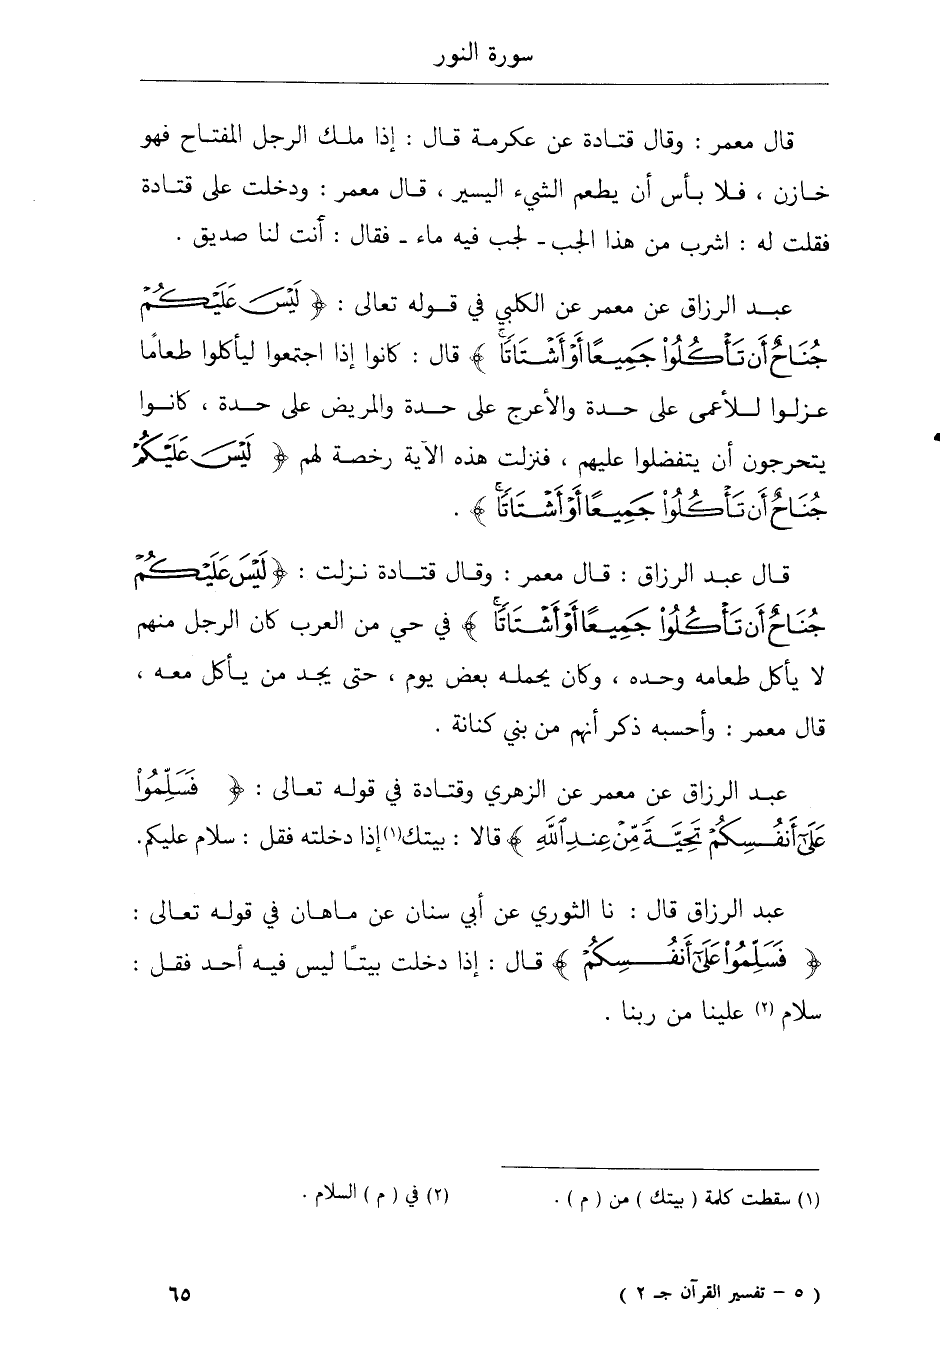 سورة النور
قال معمر : وقال قتادة عن عكرمة قال : إذا ملك الرجل المفتاح فهو
خازن ، فلا بأس أن يطعم الشيء اليسير ، قال معمر : ودخلت على قتادة
فقلت له : اشرب من هذا الجب - لجب فيه ماء - فقال : أنت لنا صديق .
عبد الرزاق عن معمر عن الكلبي في قوله تعالى : ﴿ لَيْسَ عَلَيْكُمْ
جُنَاحٌ أَن تَأْكُلُواْ جَمِيعًا أَوْ أَشْتَاتًا ﴾ قال : كانوا إذا اجتمعوا ليأكلوا طعامًا
عزلوا للأعمى على حدة والأعرج على حدة والمريض على حدة ، كانوا
يتحرجون أن يتفضلوا عليهم ، فنزلت هذه الآية رخصة لهم ﴿ لَيْسَ عَلَيْكُمْ
جُنَاحٌ أَن تَأْكُلُواْ جَمِيعًا أَوْ أَشْتَاتًا ﴾ .
قال عبد الرزاق : قال معمر : وقال قتادة نزلت : ﴿ لَيْسَ عَلَيْكُمْ
جُنَاحٌ أَن تَأْكُلُواْ جَمِيعًا أَوْ أَشْتَاتًا ﴾ في حي من العرب كان الرجل منهم
لا يأكل طعامه وحده ، وكان يحمله بعض يوم ، حتى يجد من يأكل معه ،
قال معمر : وأحسبه ذكر أنهم من بني كنانة .
عبد الرزاق عن معمر عن الزهري وقتادة في قوله تعالى : ﴿ فَسَلِّمُواْ
عَلَىٰ أَنفُسِكُمْ تَحِيَّةً مِّنْ عِندِ ٱللَّهِ ﴾ قالا : بيتك(١) إذا دخلته فقل : سلام عليكم.
عبد الرزاق قال : نا الثوري عن أبي سنان عن ماهان في قوله تعالى :
﴿ فَسَلِّمُواْ عَلَىٰ أَنفُسِكُمْ ﴾ قال : إذا دخلت بيتًا ليس فيه أحد فقل :
سلام (٢) علينا من ربنا .
(١) سقطت كلمة ( بيتك ) من ( م ) . (٢) في ( م ) السلام .
( ٥ - تفسير القرآن جـ ٢ ) ٦٥